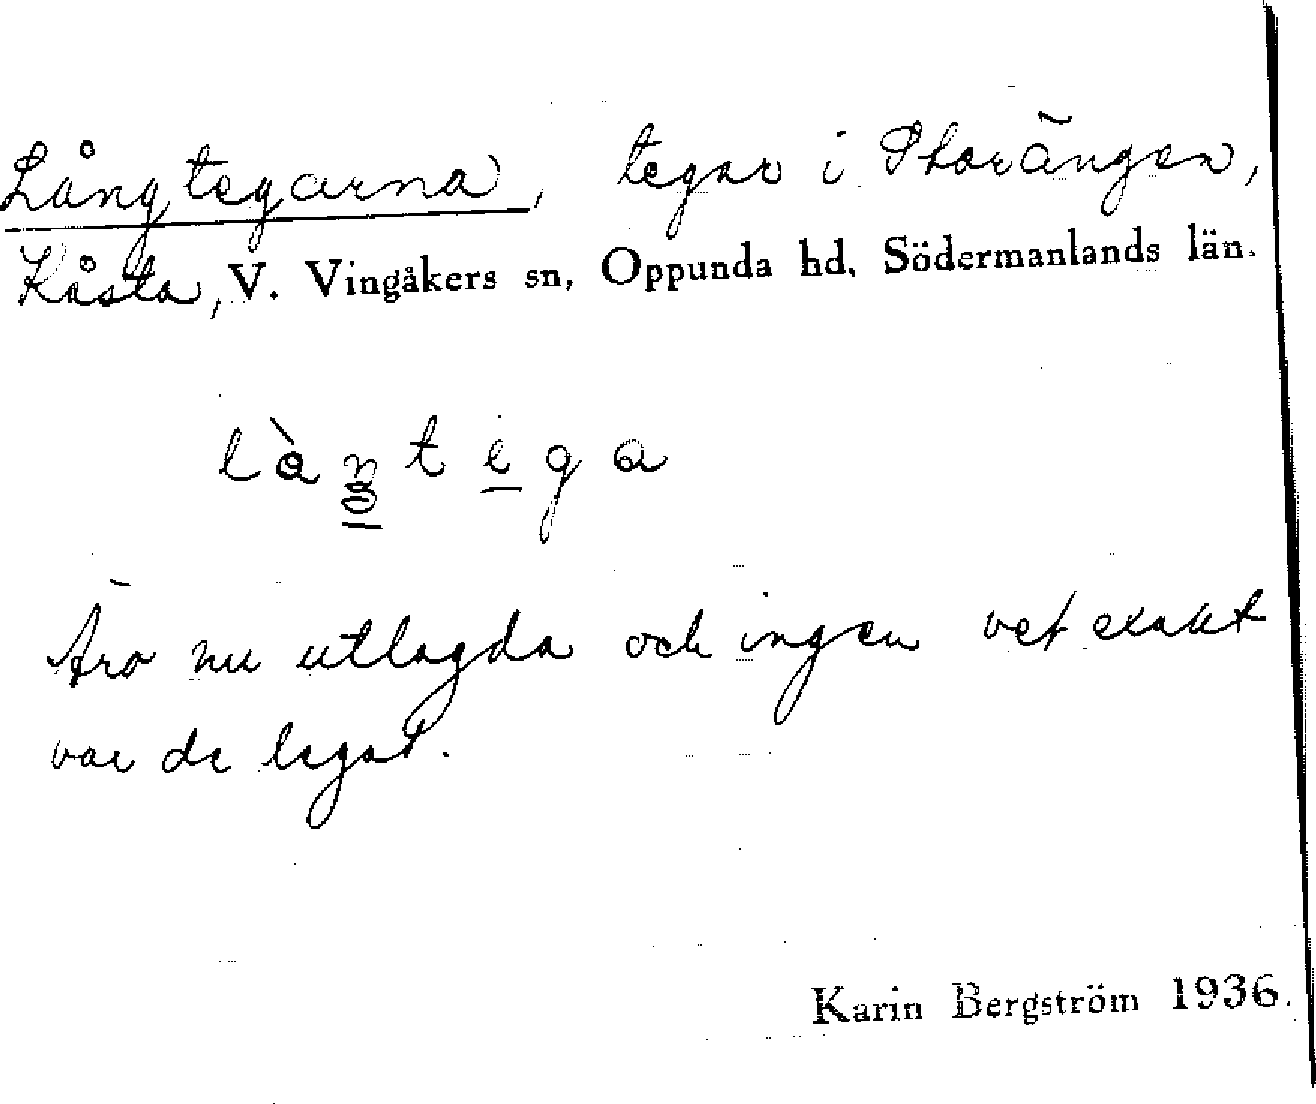 Långtegarna, tegar i Storängen,
Kåsta, V. Vingåkers sn, Oppunda hd, Södermanlands län.
Äro nu utlagda och ingen vet exakt
var de legat.
Karin Bergström 1936.